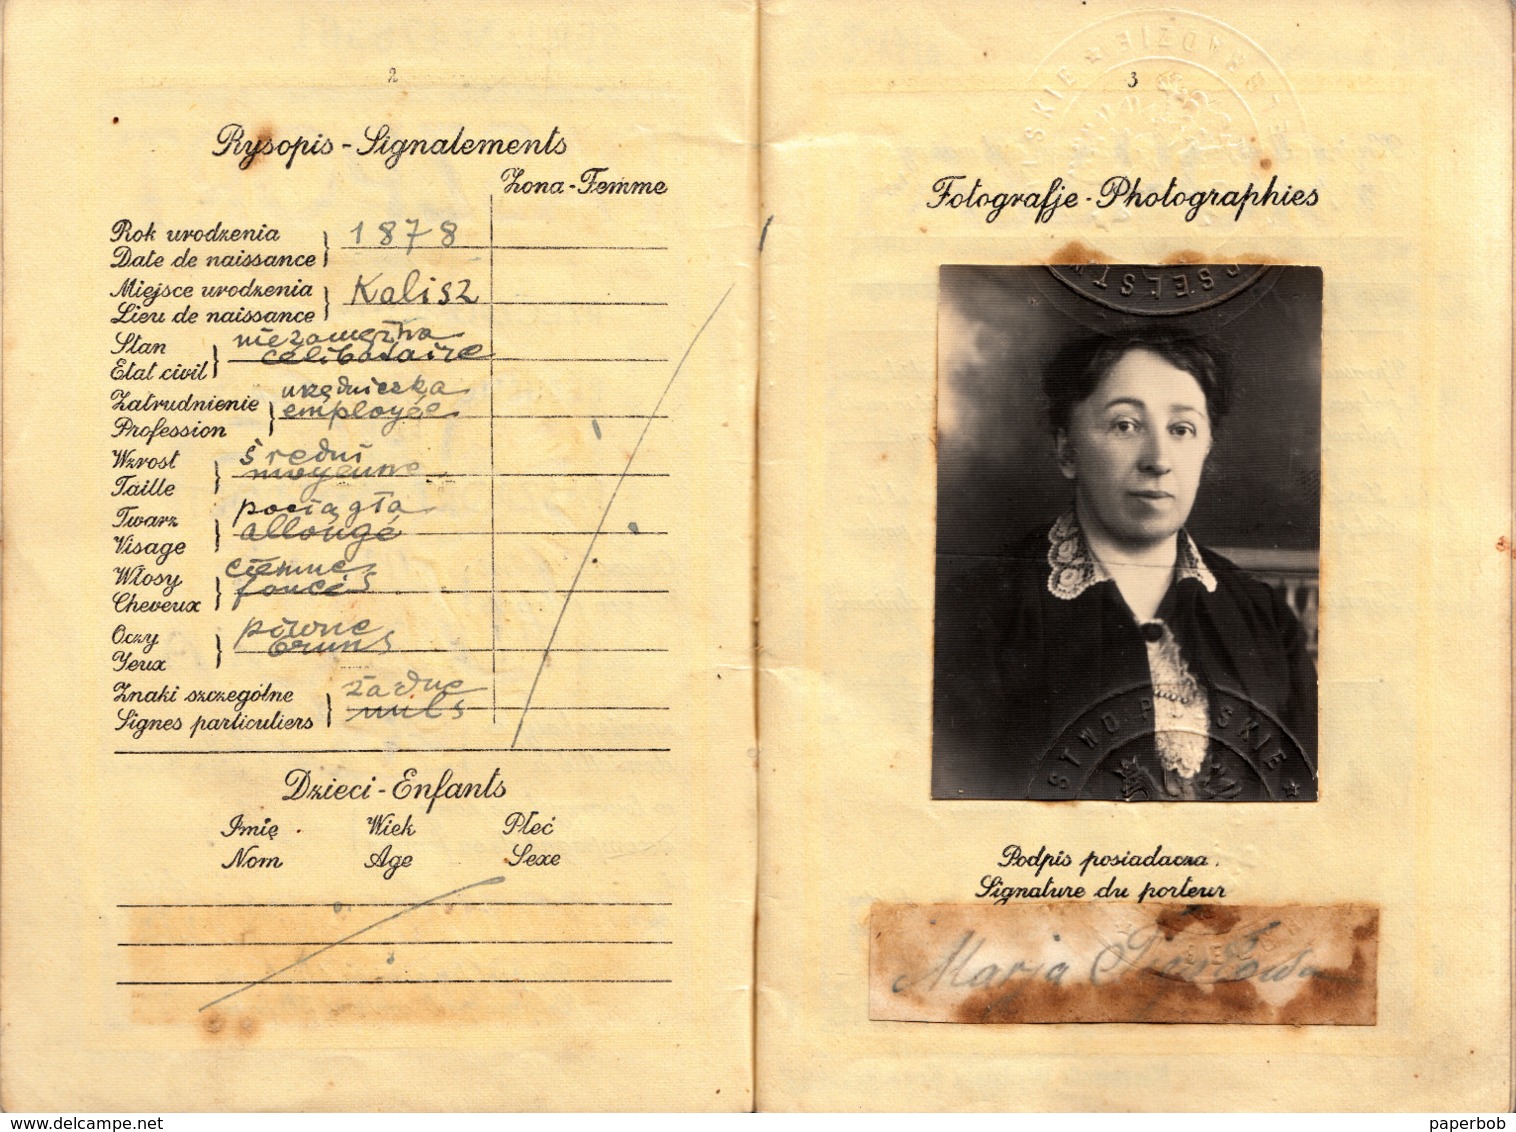 2
Rysopis - Signalements
Żona - Femme
Rok urodzenia
Date de naissance
1878
Miejsce urodzenia
Lieu de naissance
Kalisz
Stan
État civil
niezamężna
célibataire
Zatrudnienie
Profession
urzędniczka
employée
Wzrost
Taille
średni
moyenne
Twarz
Visage
pociągła
allongé
Włosy
Cheveux
ciemne
foncés
Oczy
Yeux
piwne
bruns
Znaki szczególne
Signes particuliers
żadne
nuls
Dzieci - Enfants
Imię Wiek Płeć
Nom Age Sexe
3
SKIE ★ ... BRADZIE
Fotografje - Photographies
POSELST
STWO POLSKIE ★
Podpis posiadacza.
Signature du porteur
Marja
delcampe.net
paperbob